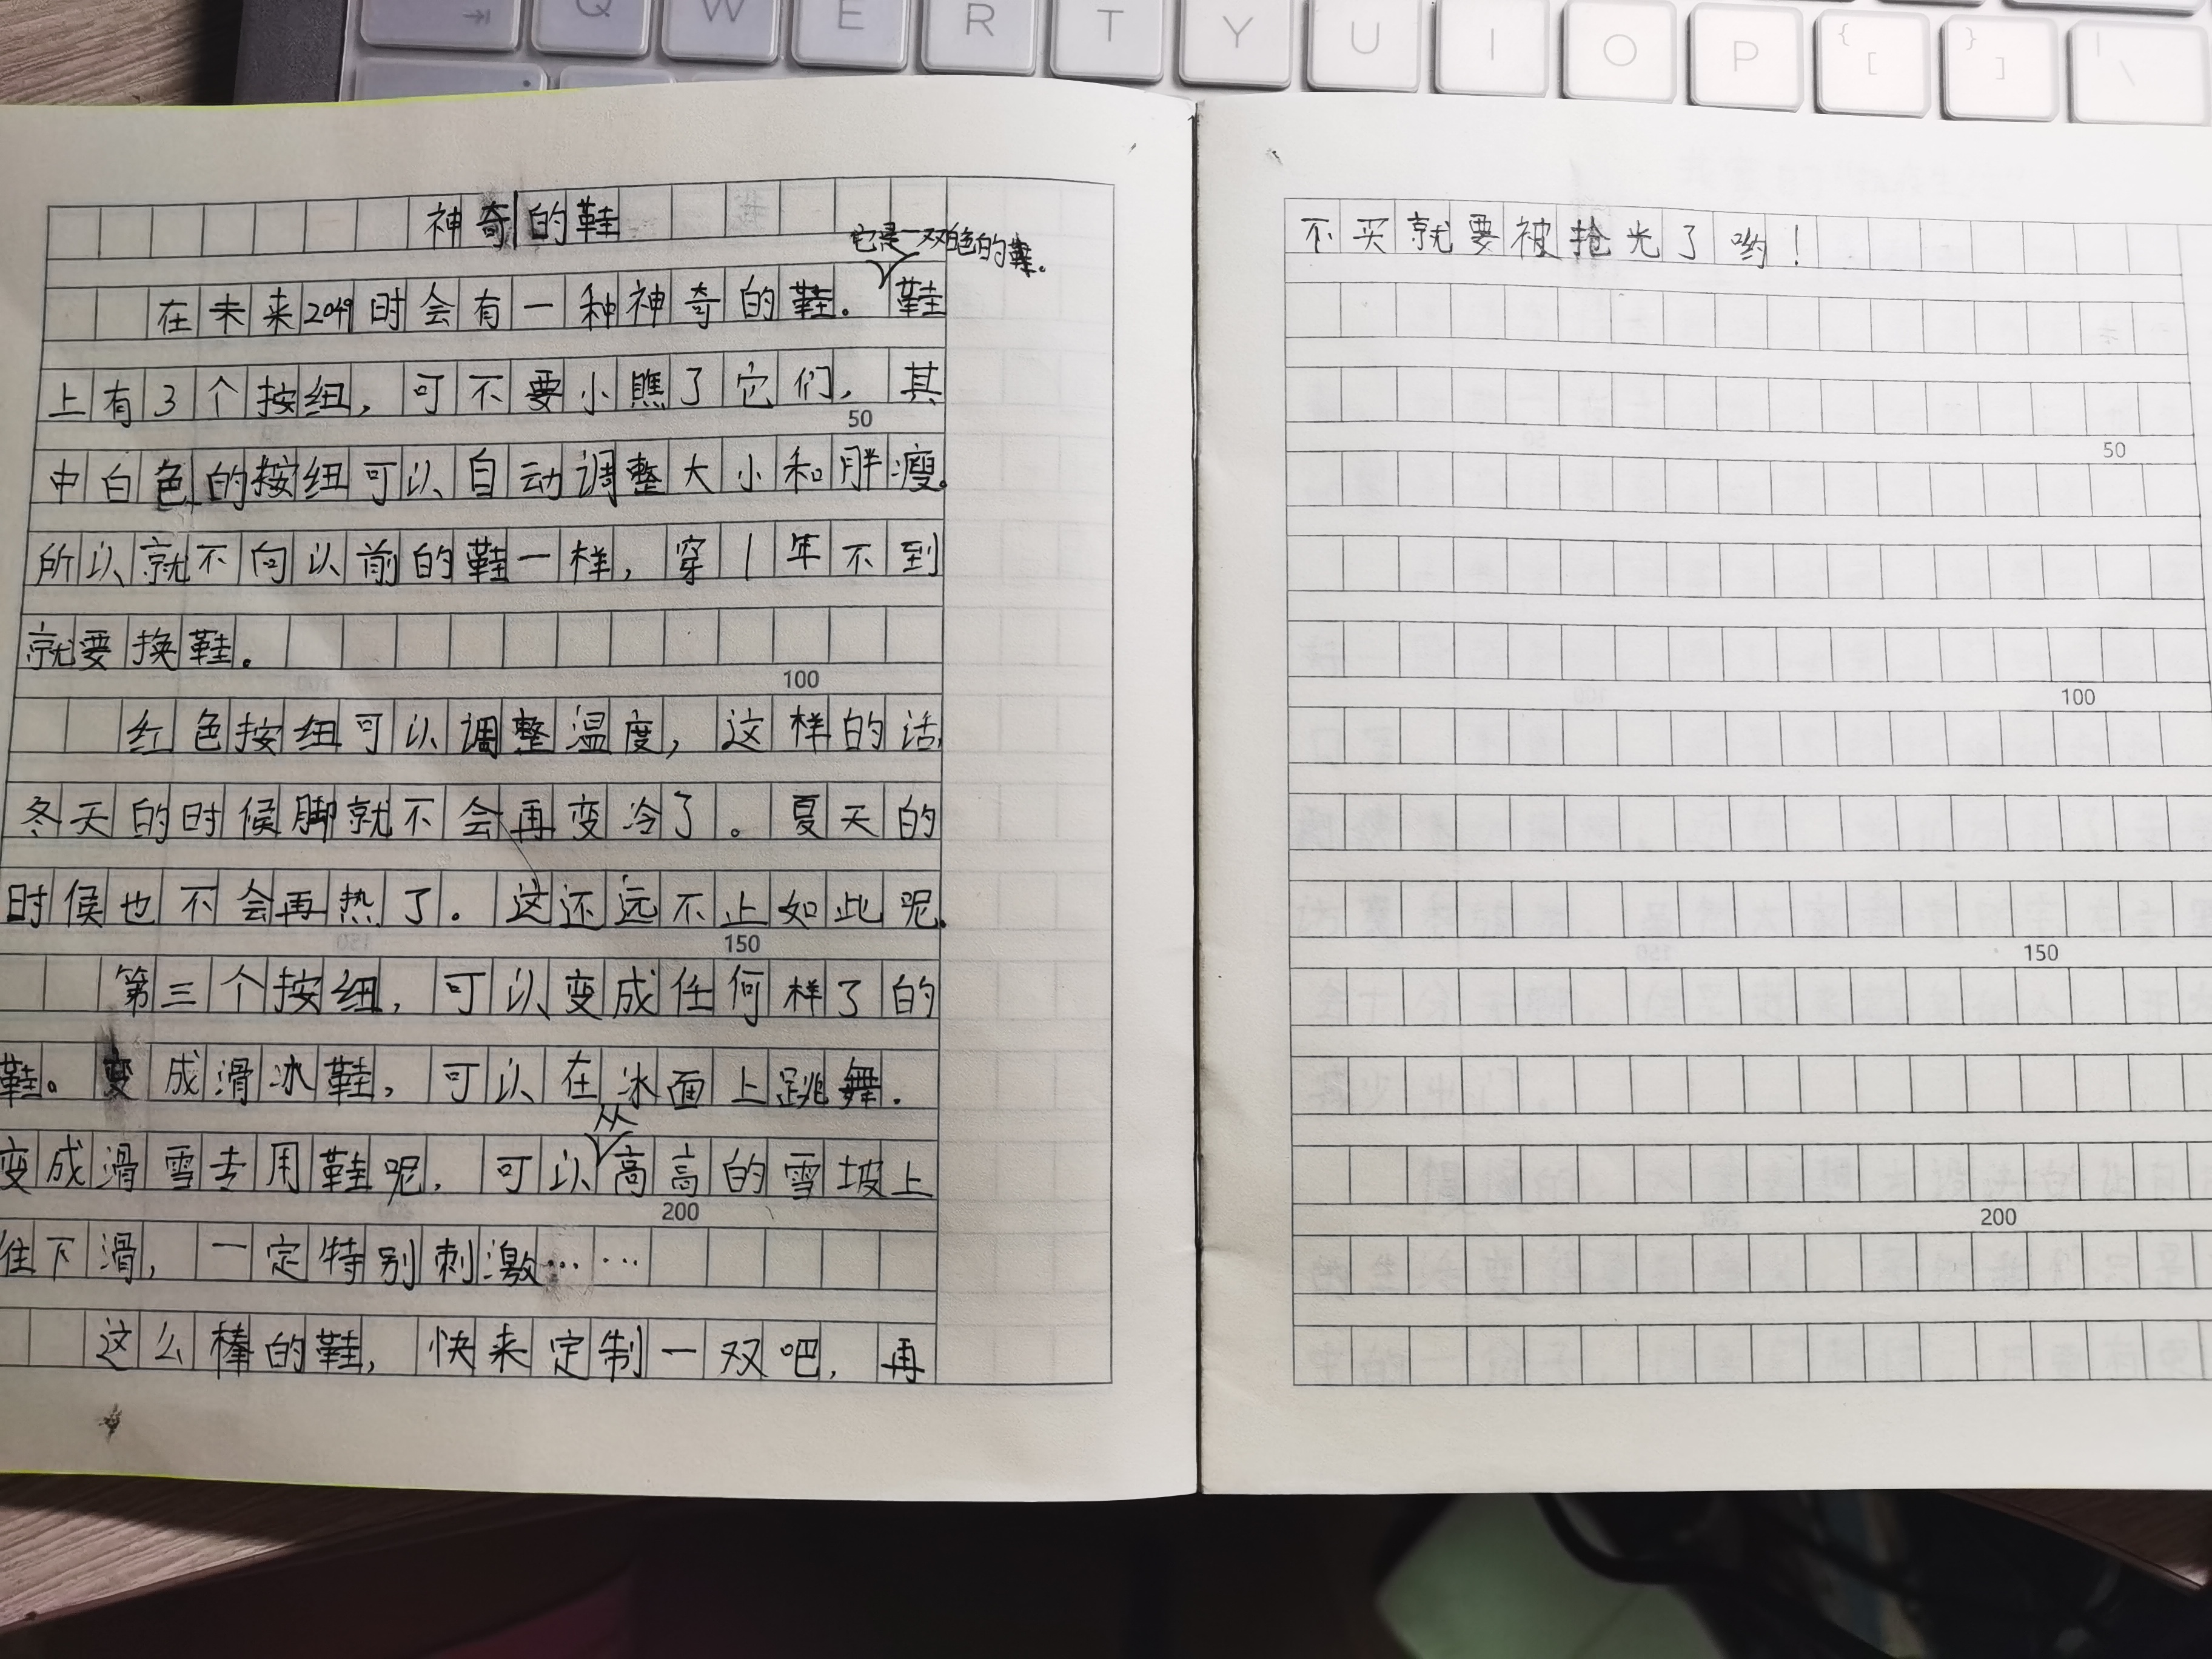 Q W E R T Y U I O P { [ } ] | \
神奇的鞋
它是一双白色的鞋。
在未来2049时会有一种神奇的鞋。鞋
上有3个按纽，可不要小瞧了它们，其
50
中白色的按纽可以自动调整大小和胖瘦。
所以就不向以前的鞋一样，穿1年不到
就要换鞋。
100
红色按纽可以调整温度，这样的话，
冬天的时候脚就不会再变冷了。夏天的
时候也不会再热了。这还远不止如此呢。
150
第三个按纽，可以变成任何样了的
鞋。变成滑冰鞋，可以在冰面上跳舞.
从
变成滑雪专用鞋呢，可以高高的雪坡上
200
往下滑，一定特别刺激……
这么棒的鞋，快来定制一双吧，再
不买就要被抢光了哟！
50
100
150
200